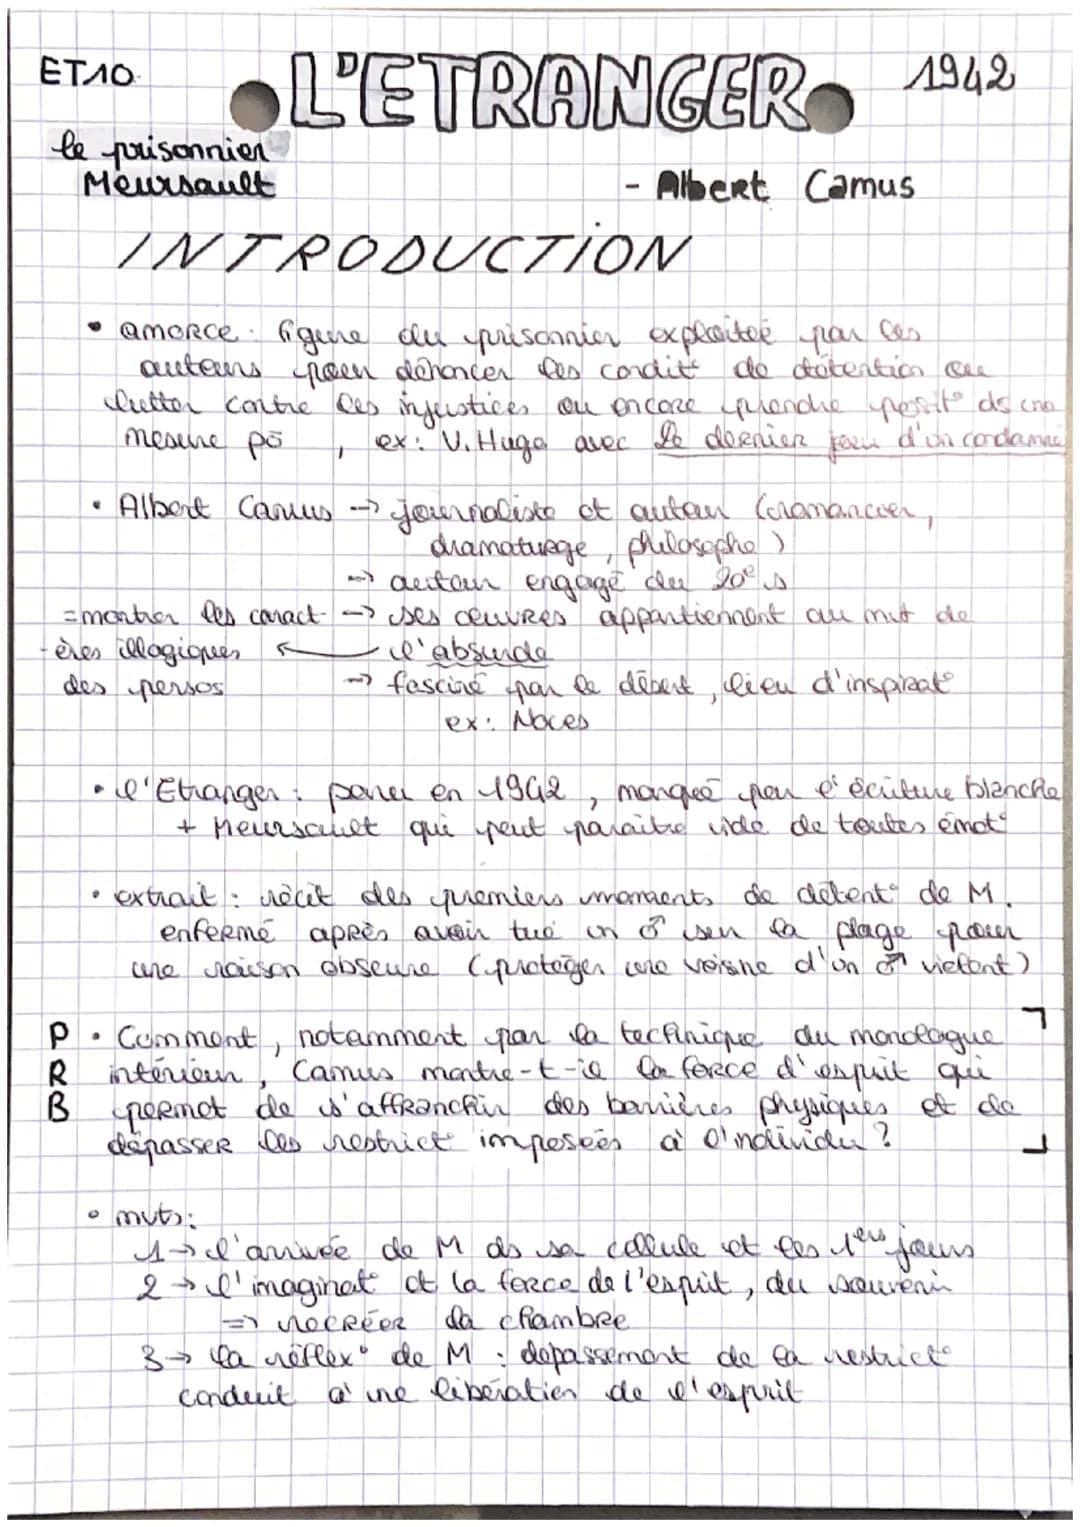 ET10
L'ETRANGER
1942
le prisonnier
Meursault
- Albert Camus
INTRODUCTION
• amorce : figure du prisonnier exploitée par les
auteurs pour dénoncer les condit° de détention ou
lutter contre les injustices ou encore prendre posit° ds une
mesure pō, ex : V. Hugo avec Le dernier jour d'un condamné
• Albert Camus → journaliste et auteur (romancier,
dramaturge, philosophe)
→ auteur engagé du 20e s
→ ses œuvres appartiennent au mvt de
l'absurde
= montrer les caract-
-ères illogiques
des persos
→ fasciné par le désert, lieu d'inspirat°
ex : Noces
• l'Etranger : paru en 1942, marqué par l'écriture blanche
+ Meursault qui peut paraître vide de toutes émot°
• extrait : récit des premiers moments de détent° de M.
enfermé après avoir tué un ♂ sur la plage pour
une raison obscure (protéger une voisine d'un ♂ violent)
PRB
• Comment, notamment par la technique du monologue
intérieur, Camus montre-t-il la force d'esprit qui
permet de s'affranchir des barrières physiques et de
dépasser les restrict° imposées à l'individu ?
• mvts :
1 → l'arrivée de M ds sa cellule et les 1ers jours
2 → l'imaginat° et la force de l'esprit, du souvenir
=> recréer la chambre
3 → la réflex° de M : dépassement de la restrict°
conduit à une libération de l'esprit